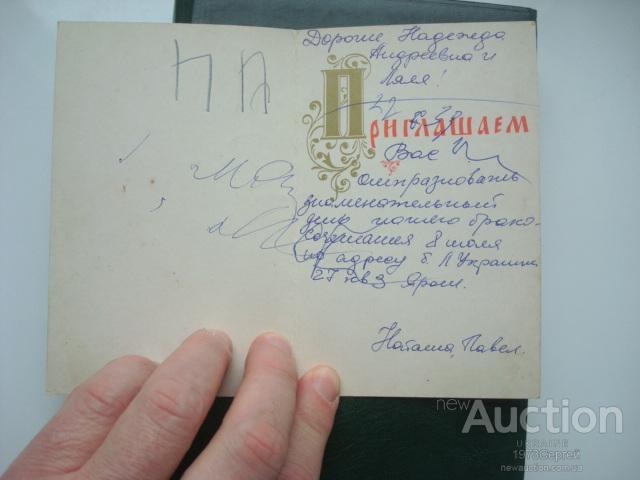 Дорогие Надежда
Андреевна и
Ляля!
Приглашаем
Вас
отпраздновать
знаменательный
день нашего брако-
сочитания 8 июля
по адресу б. Л Украинки
27 кв 3 Ярош.
Наташа, Павел.
newAuction
UKRAINE
1973Сергей
newauction.com.ua